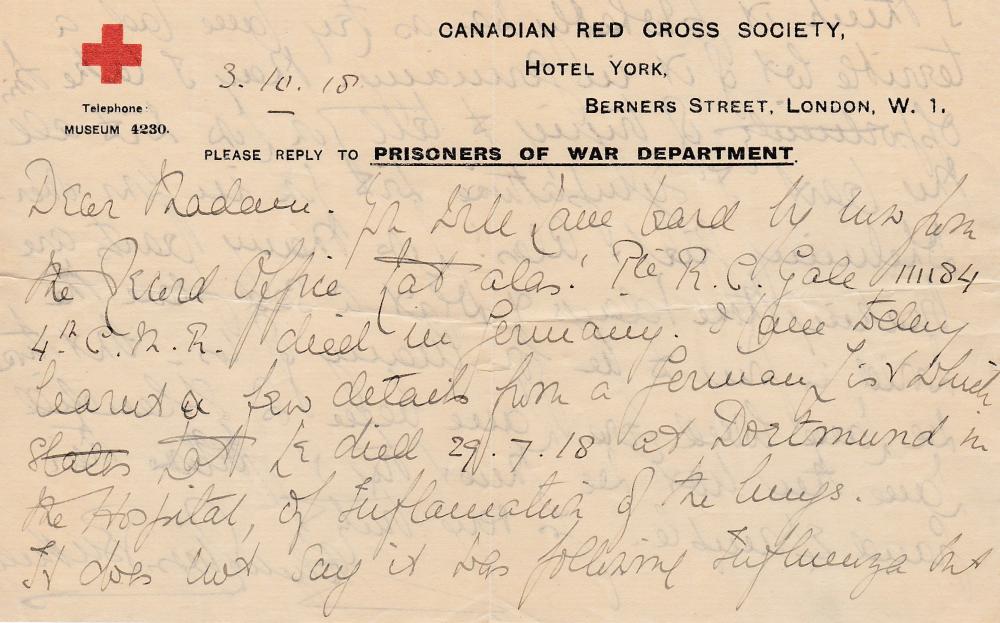 CANADIAN RED CROSS SOCIETY,
HOTEL YORK,
BERNERS STREET, LONDON, W. 1.
Telephone:
MUSEUM 4230.
3. 10. 18
PLEASE REPLY TO PRISONERS OF WAR DEPARTMENT.
Dear Madam. You will have heard by now from
the Record Office that alas! Pte R. C. Gale 111184
4th C. M. R. died in Germany. I have today
learnt a few details from a German list which
states that he died 29.7.18 at Dortmund in
the Hospital, of Inflamation of the lungs.
It does not say it was following Influenza but